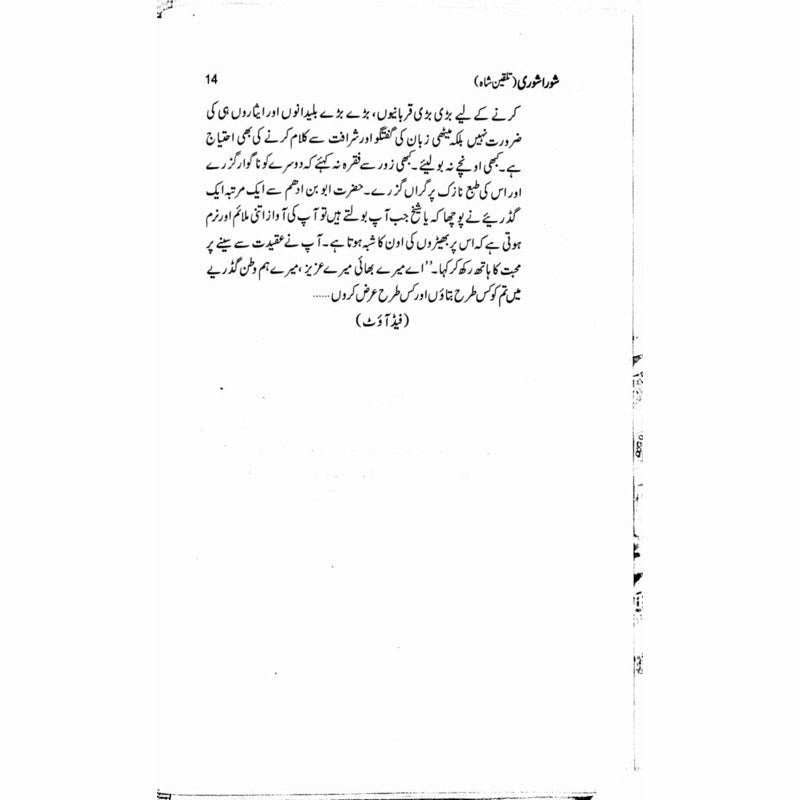 شورا شوری (تلقین شاہ) 14
کرنے کے لیے بڑی بڑی قربانیوں، بڑے بڑے بلیدانوں اور ایثاروں ہی کی
ضرورت نہیں بلکہ میٹھی زبان کی گفتگو اور شرافت سے کلام کرنے کی بھی احتیاج
ہے۔ کبھی اونچے نہ بولیئے۔ کبھی زور سے فقرہ نہ کہئے کہ دوسرے کو ناگوار گزرے
اور اس کی طبع نازک پر گراں گزرے۔ حضرت ابو بن ادھم سے ایک مرتبہ ایک
گڈریئے نے پوچھا کہ یا شیخ جب آپ بولتے ہیں تو آپ کی آواز اتنی ملائم اور نرم
ہوتی ہے کہ اس پر بھیڑوں کی اون کا شبہ ہوتا ہے۔ آپ نے عقیدت سے سینے پر
محبت کا ہاتھ رکھ کر کہا۔ ’’اے میرے بھائی میرے عزیز، میرے ہم وطن گڈریے
میں تم کو کس طرح بتاؤں اور کس طرح عرض کروں......
(فیڈ آؤٹ)